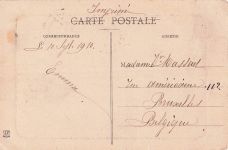 Imprimé
CARTE POSTALE
CORRESPONDANCE
ADRESSE
Le 10 Sept. 1910.
Emma
Madame Massart
Rue américaine 112
Bruxelles
Belgique